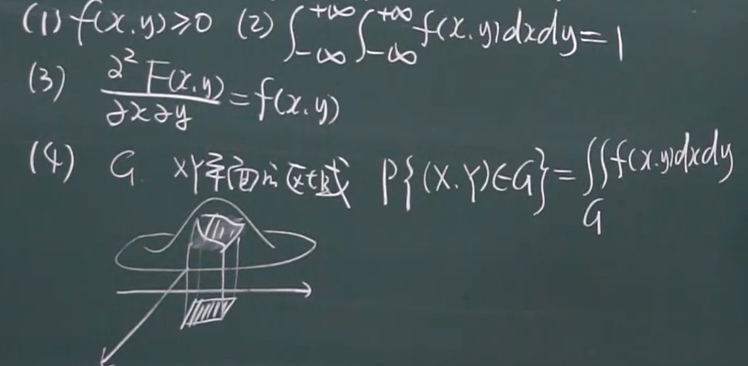 (1) f(x.y)≥0 (2) ∫_{-∞}^{+∞}∫_{-∞}^{+∞} f(x.y)dxdy=1
(3) ∂²F(x.y)/∂x∂y=f(x.y)
(4) G. XY平面的区域 P{(X.Y)∈G}=∬_G f(x.y)dxdy